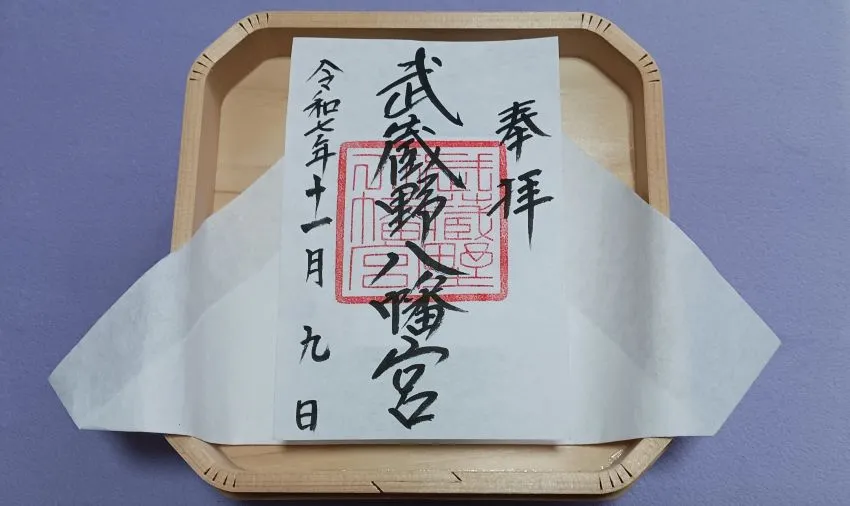 奉拝
武蔵野八幡宮
武蔵野八幡宮
令和七年十一月九日